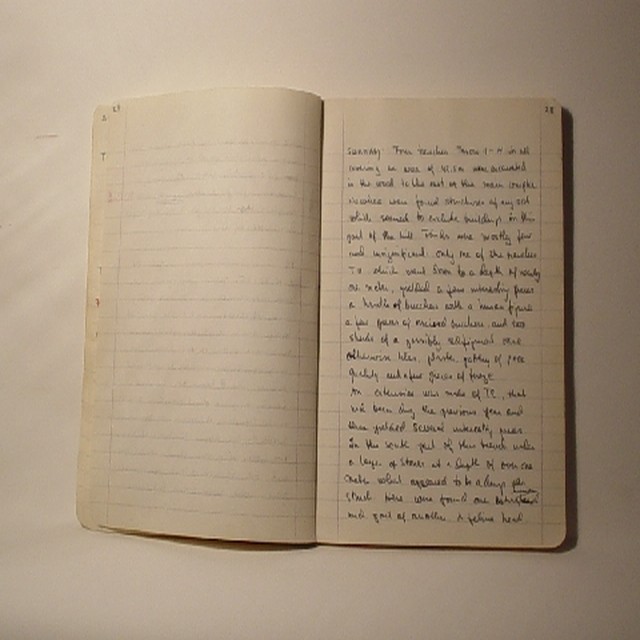 28
Summary: Four trenches
covering an area of were excavated
in the wood to the east of the main temple
nowhere were found structures of any sort
which seemed to exclude buildings in this
part of the hill. Finds were mostly few
and insignificant: only one of the trenches
T which went down to a depth of nearly
one meter, yielded a few interesting pieces
a handle of bucchero with a human figure
a few pieces of incised bucchero and two
sherds of a possibly
otherwise tiles, plain pottery of poor
quality and a few pieces of
An extension was made of T , that
had been dug the previous year and
then yielded several interesting pieces.
In the south part of this trench under
a layer of stones at a depth of over one
meter what appeared to be a dump
struck here were found one
and part of another. A feline head